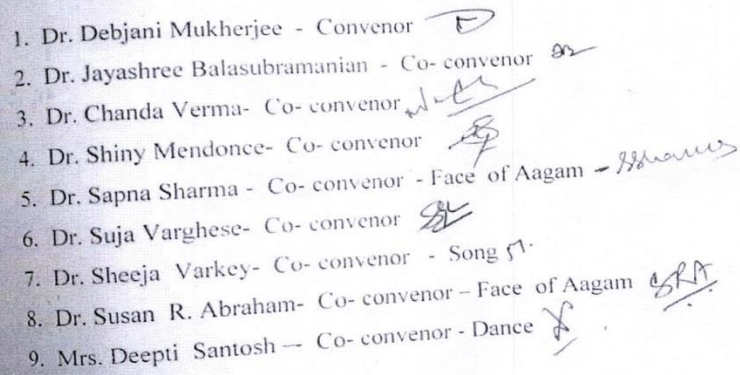 1. Dr. Debjani Mukherjee - Convenor
2. Dr. Jayashree Balasubramanian - Co- convenor
3. Dr. Chanda Verma- Co- convenor
4. Dr. Shiny Mendonce- Co- convenor
5. Dr. Sapna Sharma - Co- convenor - Face of Aagam - SSharma
6. Dr. Suja Varghese- Co- convenor
7. Dr. Sheeja Varkey- Co- convenor - Song
8. Dr. Susan R. Abraham- Co- convenor – Face of Aagam SRA
9. Mrs. Deepti Santosh — Co- convenor - Dance